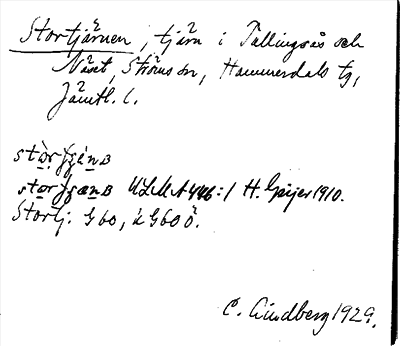 Stortjärnen, tjärn i Tullingsås och
Näset, Ströms sn, Hammerdals tg,
Jämtl. l.
ULMA 446:1 H. Geijer 1910.
Stortj. G 60, k G 60 ö.
C. Lindberg 1929.